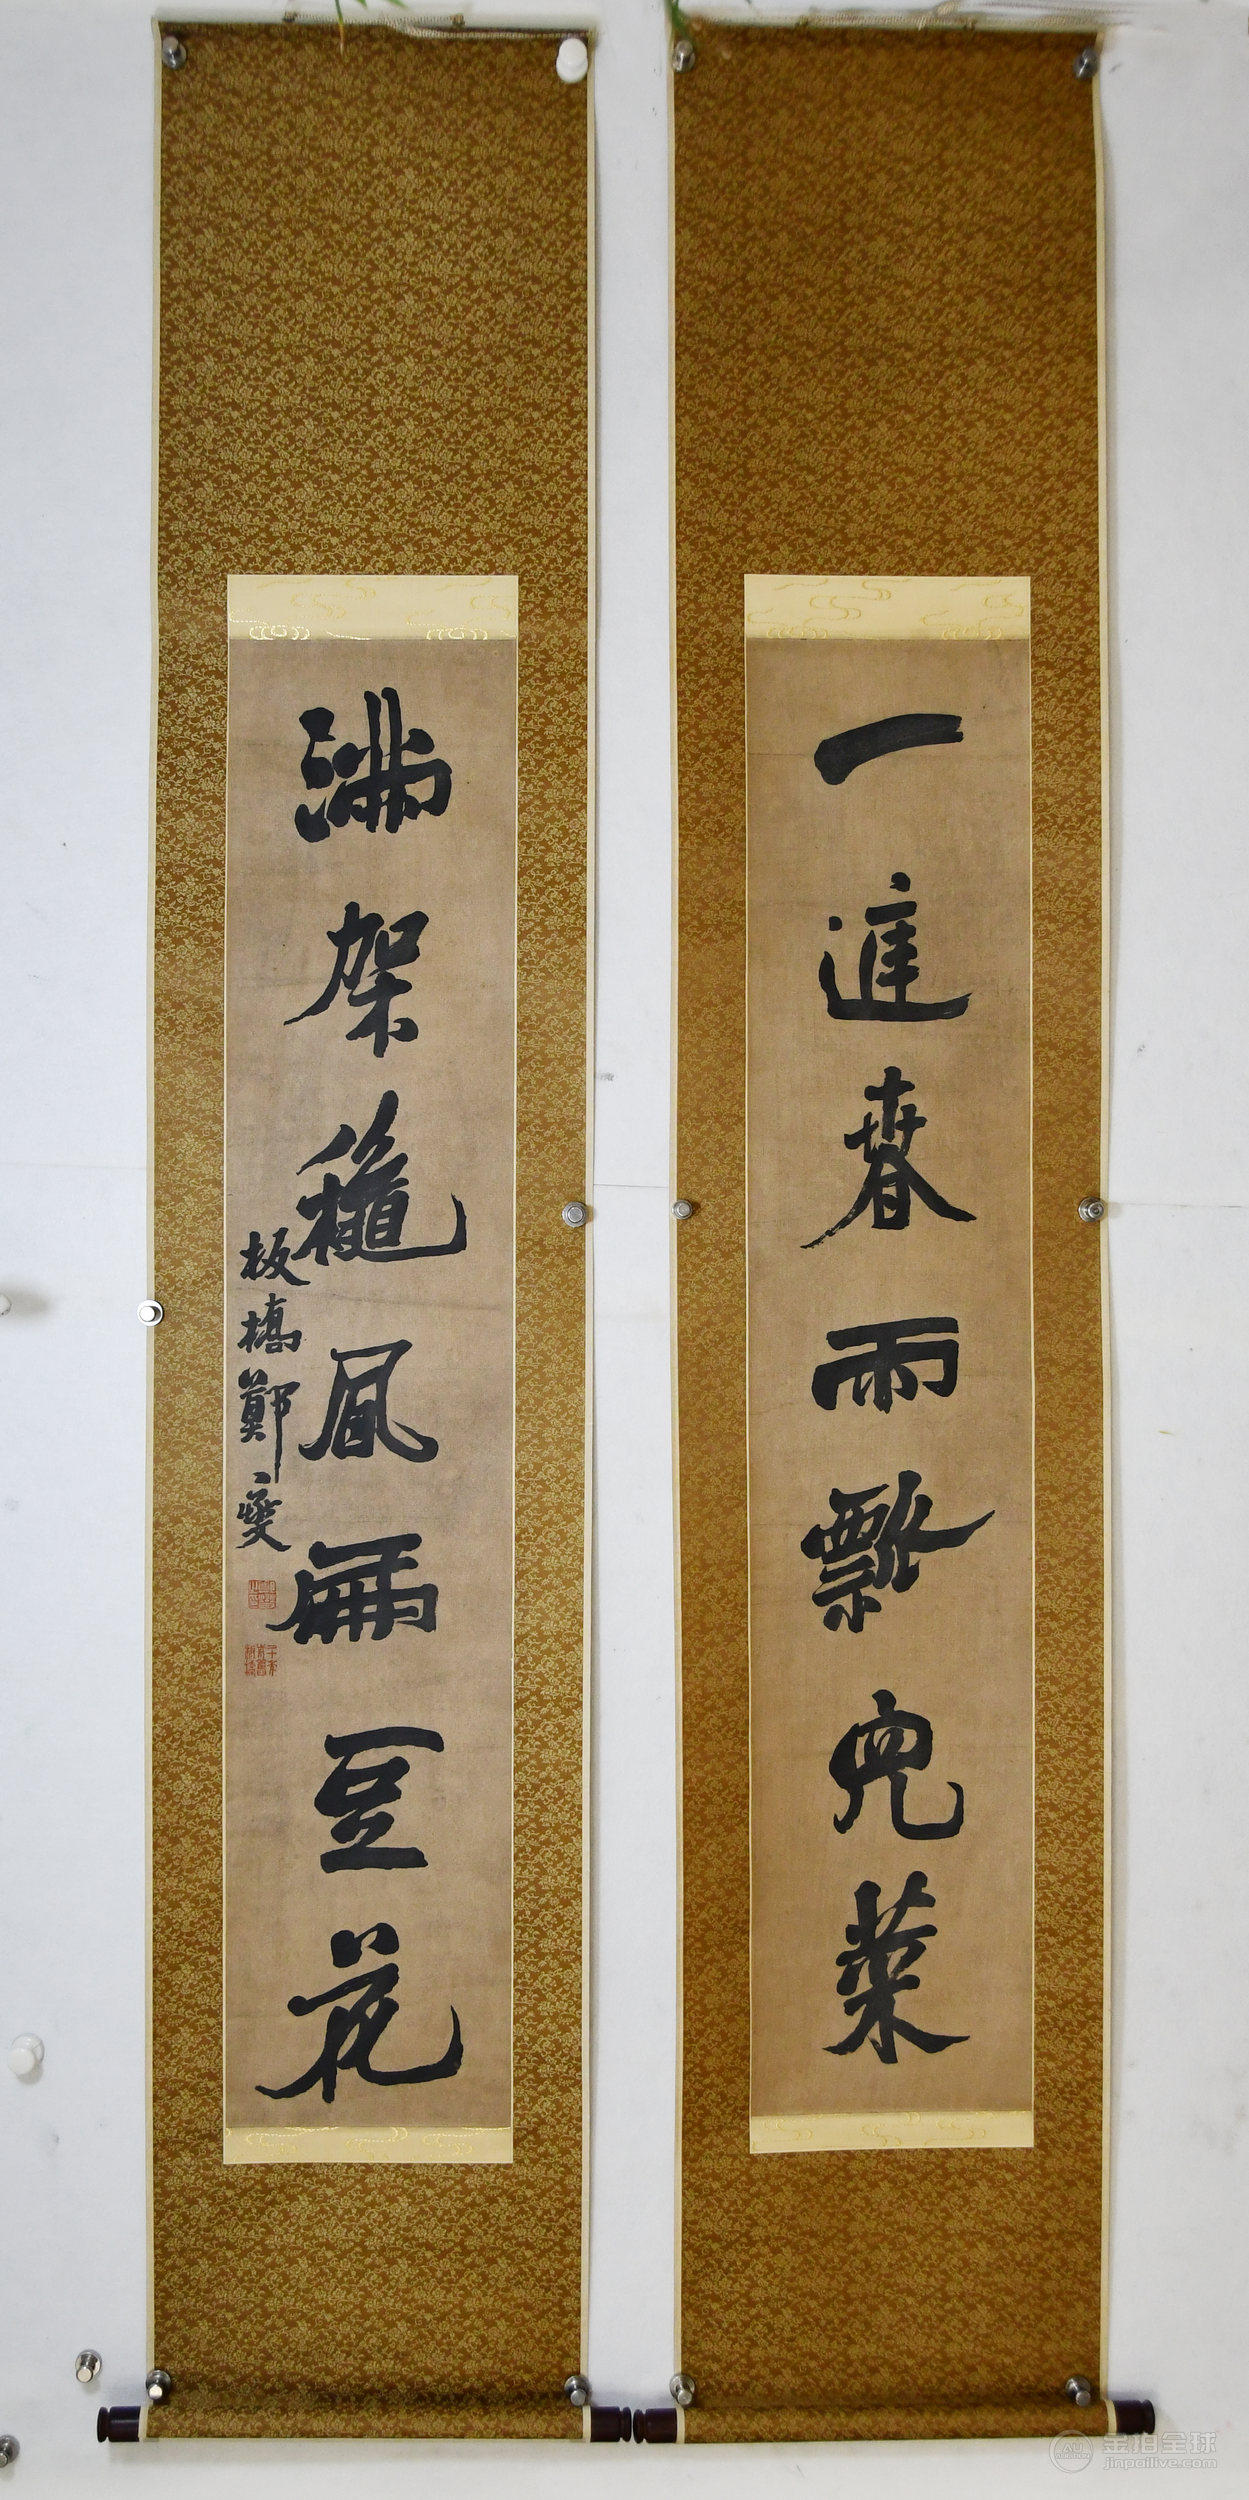 一庭春雨瓢兒菜
滿架穐風扁豆花
板橋鄭燮
金拍全球
jinpailive.com